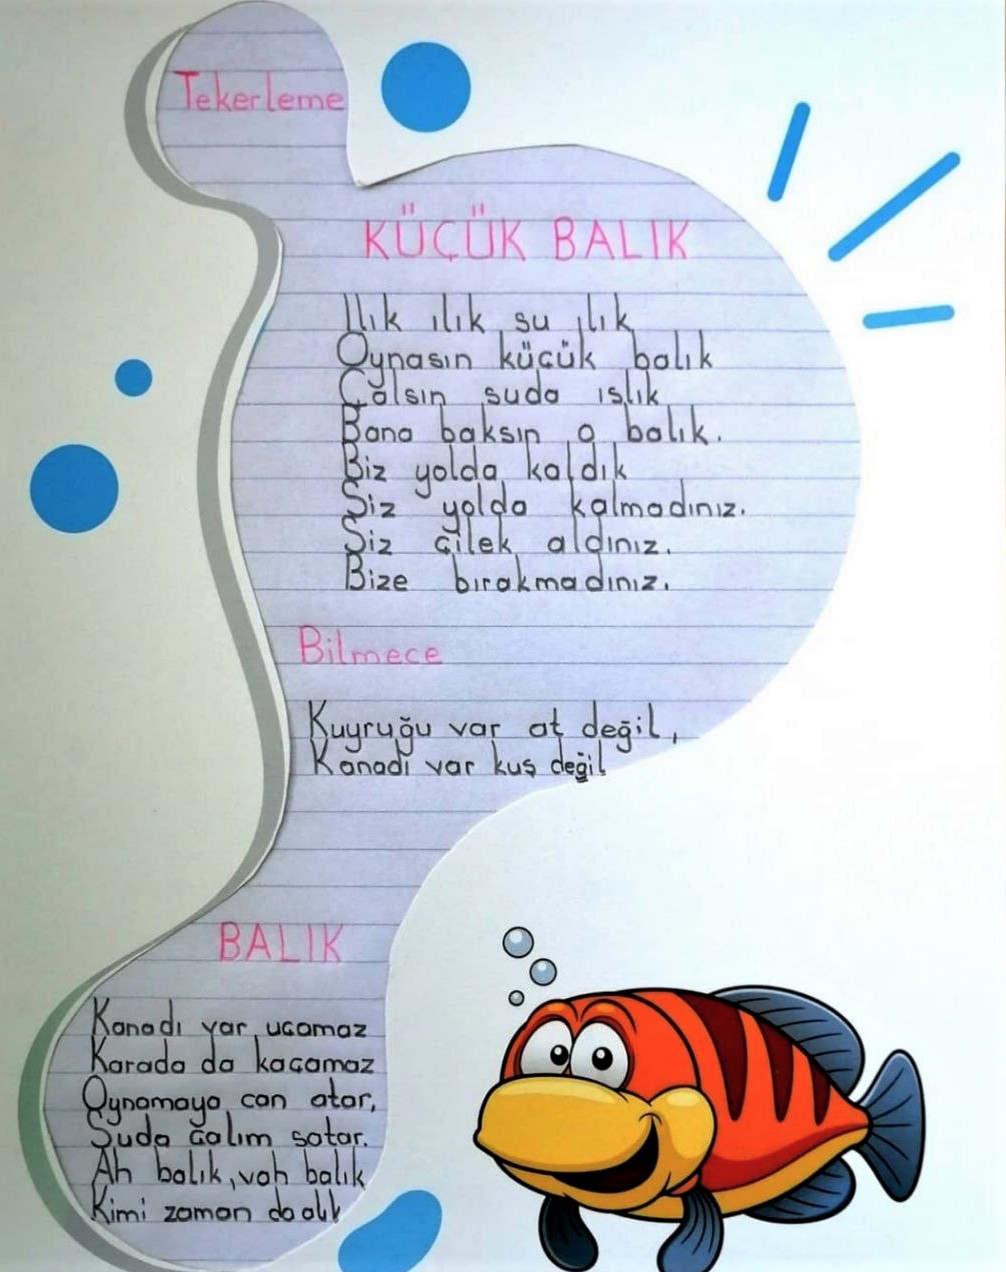 Tekerleme
KÜÇÜK BALIK
Ilık ılık su ılık
Oynasın küçük balık
Çalsın suda ıslık
Bana baksın o balık.
Biz yolda kaldık
Siz yolda kalmadınız.
Siz çilek aldınız.
Bize bırakmadınız.
Bilmece
Kuyruğu var at değil,
Kanadı var kuş değil
BALIK
Kanadı var uçamaz
Karada da kaçamaz
Oynamaya can atar,
Suda çalım satar.
Ah balık, vah balık
Kimi zaman da alık